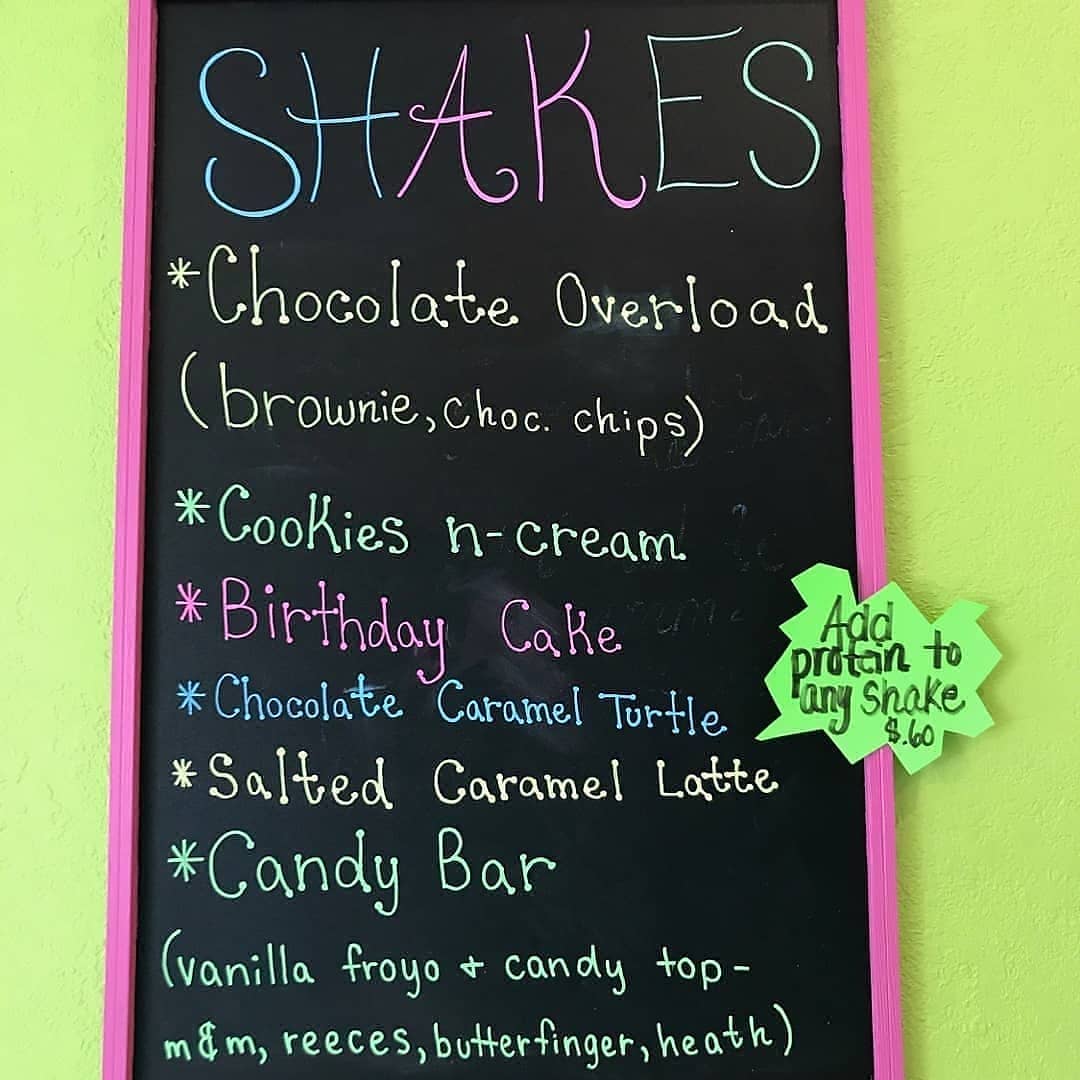 SHAKES
*Chocolate Overload
(brownie, choc. chips)
*Cookies n-cream
*Birthday Cake
*Chocolate Caramel Turtle
*Salted Caramel Latte
*Candy Bar
(vanilla froyo & candy top-
m&m, reeces, butterfinger, heath)
Add
protein to
any shake
$.60